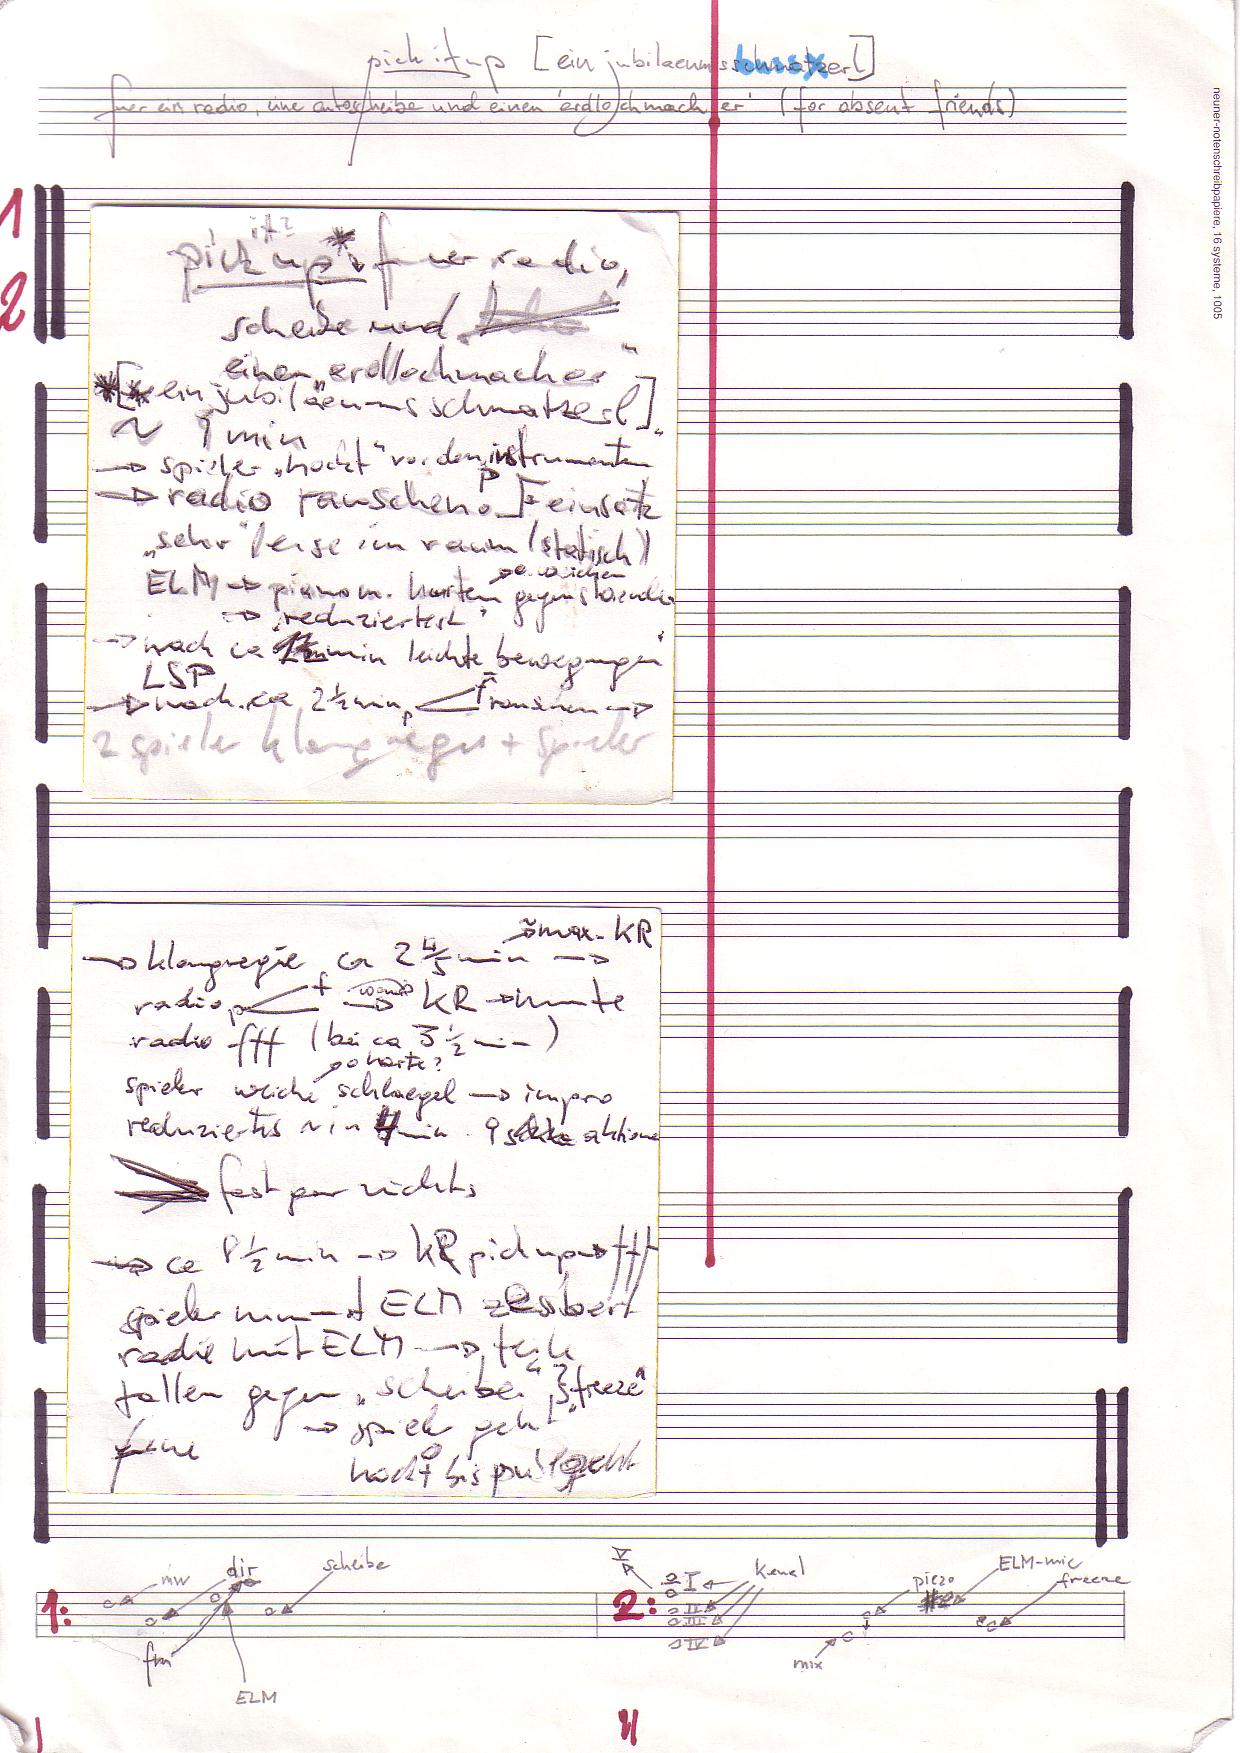 pick it up [ein jubilaeumsschmatzerl]
fuer ein radio, eine autoscheibe und einen 'erdlochmacher' (for absent friends)
neuner-notenschreibpapiere, 16 systeme, 1005
1
2
it?
pick up* fuer radio,
scheibe und
einen "erdlochmacher"
[ein jubiläeumsschmatzerl]
~ 9 min
→ spieler "hockt" vor den instrumenten
→ radio rauschen p einsatz
"sehr" leise im raum (statisch)
ELM → piano m. harten gegenstaenden
→ "reduziertest"
→ nach ca min leichte bewegungen
LSP
→ nach ca 2 1/2 min p < f rauschen →
2 spieler klangregie + spieler
→ max. KR
→ klangregie ca 2 4/5 min →
radio p < f → KR → mute
radio fff (bei ca 3 1/2 min)
→ harte?
spieler weiche schlaegel → impro
reduziertes ~ in 4 min 9 aktionen
fast gar nichts
→ ca 8 1/2 min → KR pick up → fff
spieler nimmt ELM
radio mit ELM → teile
fallen gegen "scheibe", "freeze"
→ spieler geht
fine
hockt bis
mw
dir
scheibe
1:
fm
ELM
V
I
kanal
2:
II
III
IV
mix
piezo
ELM-mic
freeze